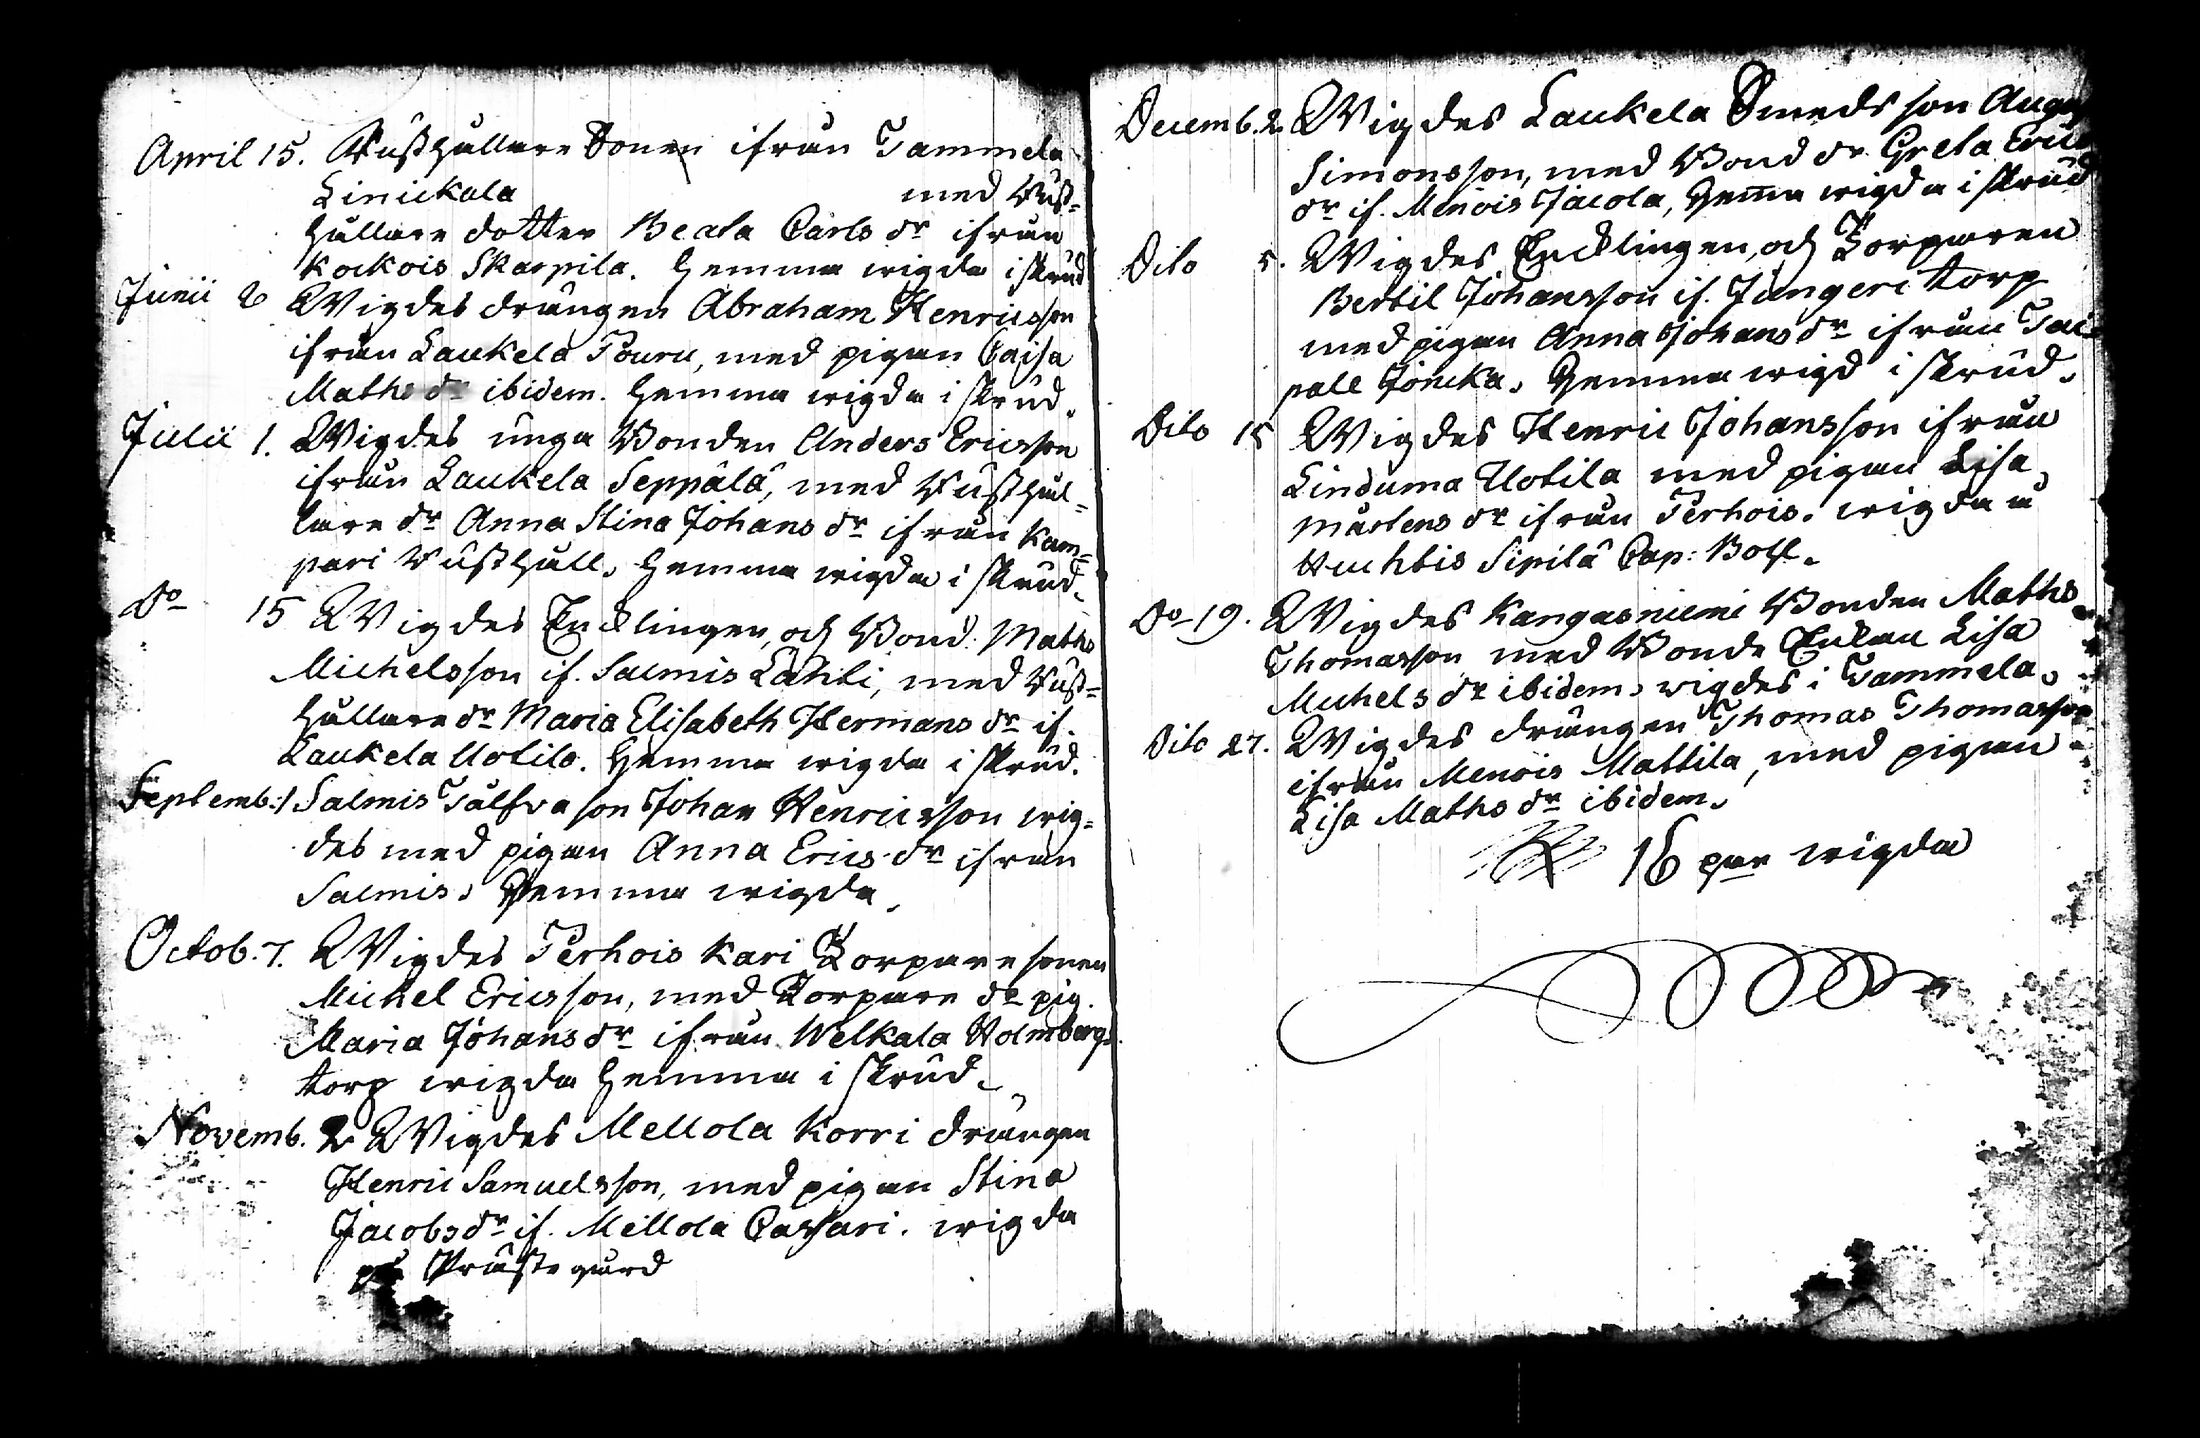 April 15. Rusthållare Sonen ifrån Tammela
Liniickala med Rust=
hållare dotter Beata Carls dr ifrån
Kockois Skarpila. Hemma wigda i skrud
Junii 2 Wigdes drängen Abraham Henricsson
ifrån Laukela Pouru, med pigan Caisa
Maths dr ibidem. Hemma wigda i skrud.
Julii 1. Wigdes unga Bonden Anders Ericsson
ifrån Laukela Seppälä, med Rusthål=
lare dr Anna Stina Johans dr ifrån Kam=
pari Rusthåll. Hemma wigda i skrud.
Do 15 Wigdes Encklingen, och Bond. Maths
Michelsson if. Salmis Lahti, med Rust=
hållare dr Maria Elisabeth Hermans dr if.
Laukela Uotila. Hemma wigda i skrud.
Septemb: 1 Salmis Tålfva son Johan Henricsson wig=
des med pigan Anna Erics dr ifrån
Salmis. Hemma wigda.
Octob. 7. Wigdes Perhois Kari Torpare sonen
Michel Ericsson, med Torpare dr pig.
Maria Johans dr ifrån Welkala Holmbergs
torp wigda hemma i skrud.
Novemb. 2 Wigdes Mellola Korri drängen
Henric Samuelsson, med pigan Stina
Jacobs dr if. Mellola Cassari. wigda
på Prästegård
Decemb. 2. Wigdes Laukela Smeds son
Simonsson, med Bond dr Greta Erics
dr if. Menois Jacola, hemma wigda i skrud
Dito 5. Wigdes Encklingen, och Torparen
Bertil Johansson if. Jungeri torp
med pigan Anna Johans dr ifrån Tai=
pale Jöncka. Hemma wigd i skrud.
Dito 15 Wigdes Henric Johansson ifrån
Linduma Uotila med pigan Lisa
Mårtens dr ifrån Perhois. wigda å
Huhtis Sipilä Cap: Bolf.
Do 19. Wigdes Kangasniemi Bonden Maths
Thomasson med Bonde Enkan Lisa
Michels dr ibidem, wigdes i Tammela.
Dito 27. Wigdes drängen Thomas Thomasson
ifrån Menois Mattila, med pigan
Lisa Maths dr ibidem.
16 par wigda